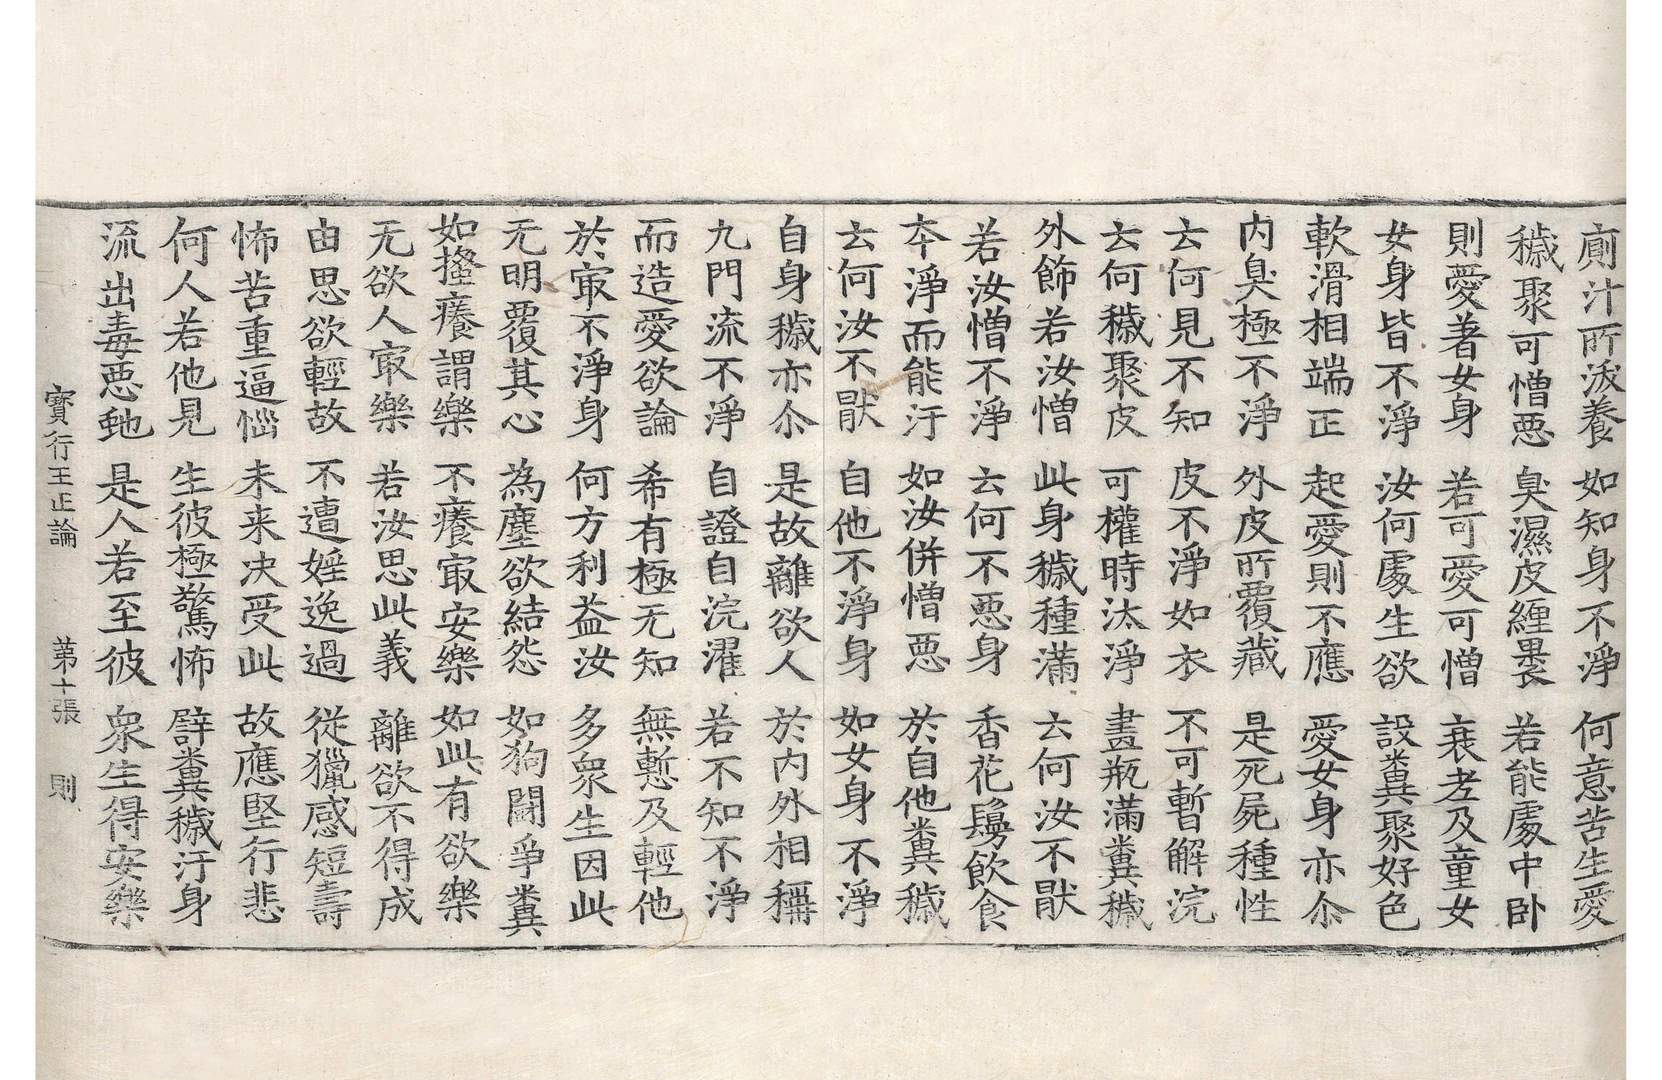 廁汁所洟養 如知身不淨 何意苦生愛
穢聚可憎惡 臭濕皮纏褁 若能處中卧
則愛著女身 若可愛可憎 衰老及童女
女身皆不淨 汝何處生欲 設糞聚好色
軟滑相端正 起愛則不應 愛女身亦尒
内臭極不淨 外皮所覆藏 是死屍種性
云何見不知 皮不淨如衣 不可暫解浣
云何穢聚皮 可權時汰淨 畫瓶滿糞穢
外飾若汝憎 此身穢種滿 云何汝不猒
若汝憎不淨 云何不惡身 香花鬘飲食
夲淨而能汙 如汝併憎惡 於自他糞穢
云何汝不猒 自他不淨身 如女身不淨
自身穢亦尒 是故離欲人 於内外相稱
九門流不淨 自證自浣濯 若不知不淨
而造愛欲論 希有極无知 無慙及輕他
於冣不淨身 何方利益汝 多衆生因此
无明覆其心 為塵欲結怨 如狗鬪爭糞
如搔癢謂樂 不癢冣安樂 如此有欲樂
无欲人冣樂 若汝思此義 離欲不得成
由思欲輕故 不遭婬逸過 從獵感短壽
怖苦重逼惱 未来决受此 故應堅行悲
何人若他見 生彼極驚怖 譬糞穢汙身
流出毒惡虵 是人若至彼 衆生得安樂
寳行王正論 第十張 則